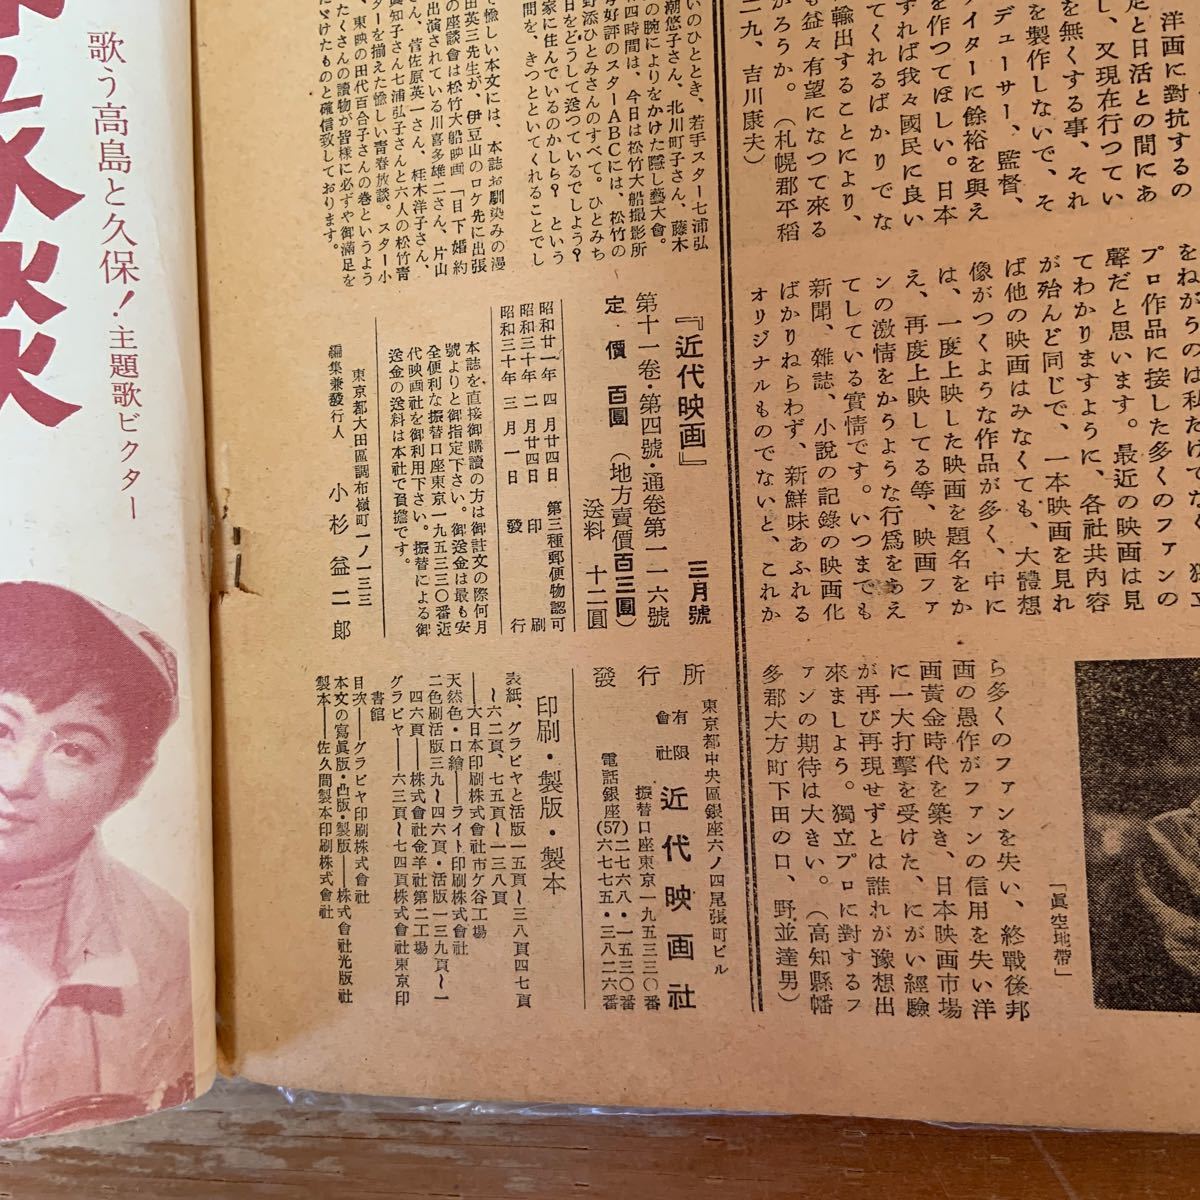 洋画に對抗する
足と日活との間にあ
し、又現在行つてい
を無くする事、それ
を製作しないで、そ
デューサー、監督、
イターに餘裕を與え
を作つてほしい。日本
ずれば我々國民に良い
てくれるばかりでな
輸出することにより、
も益々有望になつて來る
がろうか。（札幌郡平稲
二九、吉川康夫）
をねがうのは私だけでな
プロ作品に接した多くのファンの
聲だと思います。最近の映画は見
てわかりますように、各社共内容
が殆んど同じで、一本映画を見れ
ば他の映画はみなくても、大體想
像がつくような作品が多く、中に
は、一度上映した映画を題名をか
え、再度上映してる等、映画ファ
ンの激情をからうような行爲をあえ
てしている實情です。いつまでも
新聞、雜誌、小説の記錄の映画化
ばかりねらわず、新鮮味あふれる
オリジナルものでないと、これか
ら多くのファンを失い、終戰後邦
画の愚作がファンの信用を失い洋
画黄金時代を築き、日本映画市場
に一大打擊を受けた、にがい經驗
が再び再現せずとは誰れが豫想出
來ましよう。獨立プロに對するフ
ァンの期待は大きい。（高知縣幡
多郡大方町下田の口、野並達男）
「眞空地帶」
いのひととき、若手スター七浦弘
潮悠子さん、北川町子さん、藤木
の腕によりをかけた隱し藝大會。
四時間は、今日は松竹大船撮影所
好評のスターABCには、松竹の
野添ひとみさんのすべて。ひとみち
日をどうして送つているでしよう？
家に住んでいるのかしら？　という
間を、きつとといてくれることでし
て愉しい本文には、本誌お馴染みの漫
田英三先生が、伊豆山のロケ先に出張
の座談會は松竹大船映画「目下婚約
出演されている川喜多雄二さん、片山
さん、菅佐原英一さん、桂木洋子さん、
眞知子さん七浦弘子さんと六人の松竹靑
ターを揃えた愉しい靑春放談。スター小
、東映の田代百合子さんの卷というよう
たくさんの讀物が皆様に必ずや御滿足を
だけたものと確信致しております。
『近代映画』　三月號
第十一卷・第四號・通卷第一一六號
定　價　百圓　（地方賣價百三圓）
送料　十二圓
昭和廿一年　四月廿四日　第三種郵便物認可
昭和三十年　二月廿四日　印　刷
昭和三十年　三月一日　發　行
本誌を直接御購讀の方は御註文の際何月
號よりと御指定下さい。御送金は最も安
全便利な振替口座東京一九五三三〇番近
代映画社を御利用下さい。振替による御
送金の送料は本社で負擔です。
東京都大田區調布嶺町一ノ一三三
編集兼發行人　小杉益二郎
發行所
東京都中央區銀座六ノ四尾張町ビル
有限會社　近代映画社
振替口座東京一九五三三〇番
電話銀座(57)二七六八・一五三〇番
六七七五・三八二六番
印刷・製版・製本
表紙、グラビヤと活版一五頁〜三八頁四七頁
〜六二頁、七五頁〜一三八頁
——大日本印刷株式會社市ケ谷工場
天然色・口繪——ライト印刷株式會社
二色刷活版三九〜四六頁・活版一三九頁〜一
四六頁——株式會社金羊社第二工場
グラビヤ——六三頁〜七四頁株式會社東京印
書館
目次——グラビヤ印刷株式會社
本文の寫眞版・凸版・製版——株式會社光版社
製本——佐久間製本印刷株式會社
歌う高島と久保！主題歌ビクター